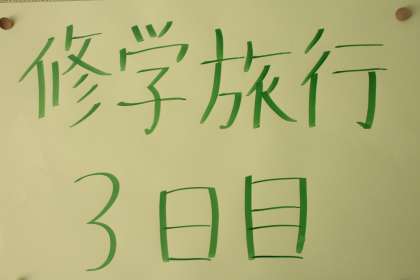 修学旅行
3日目